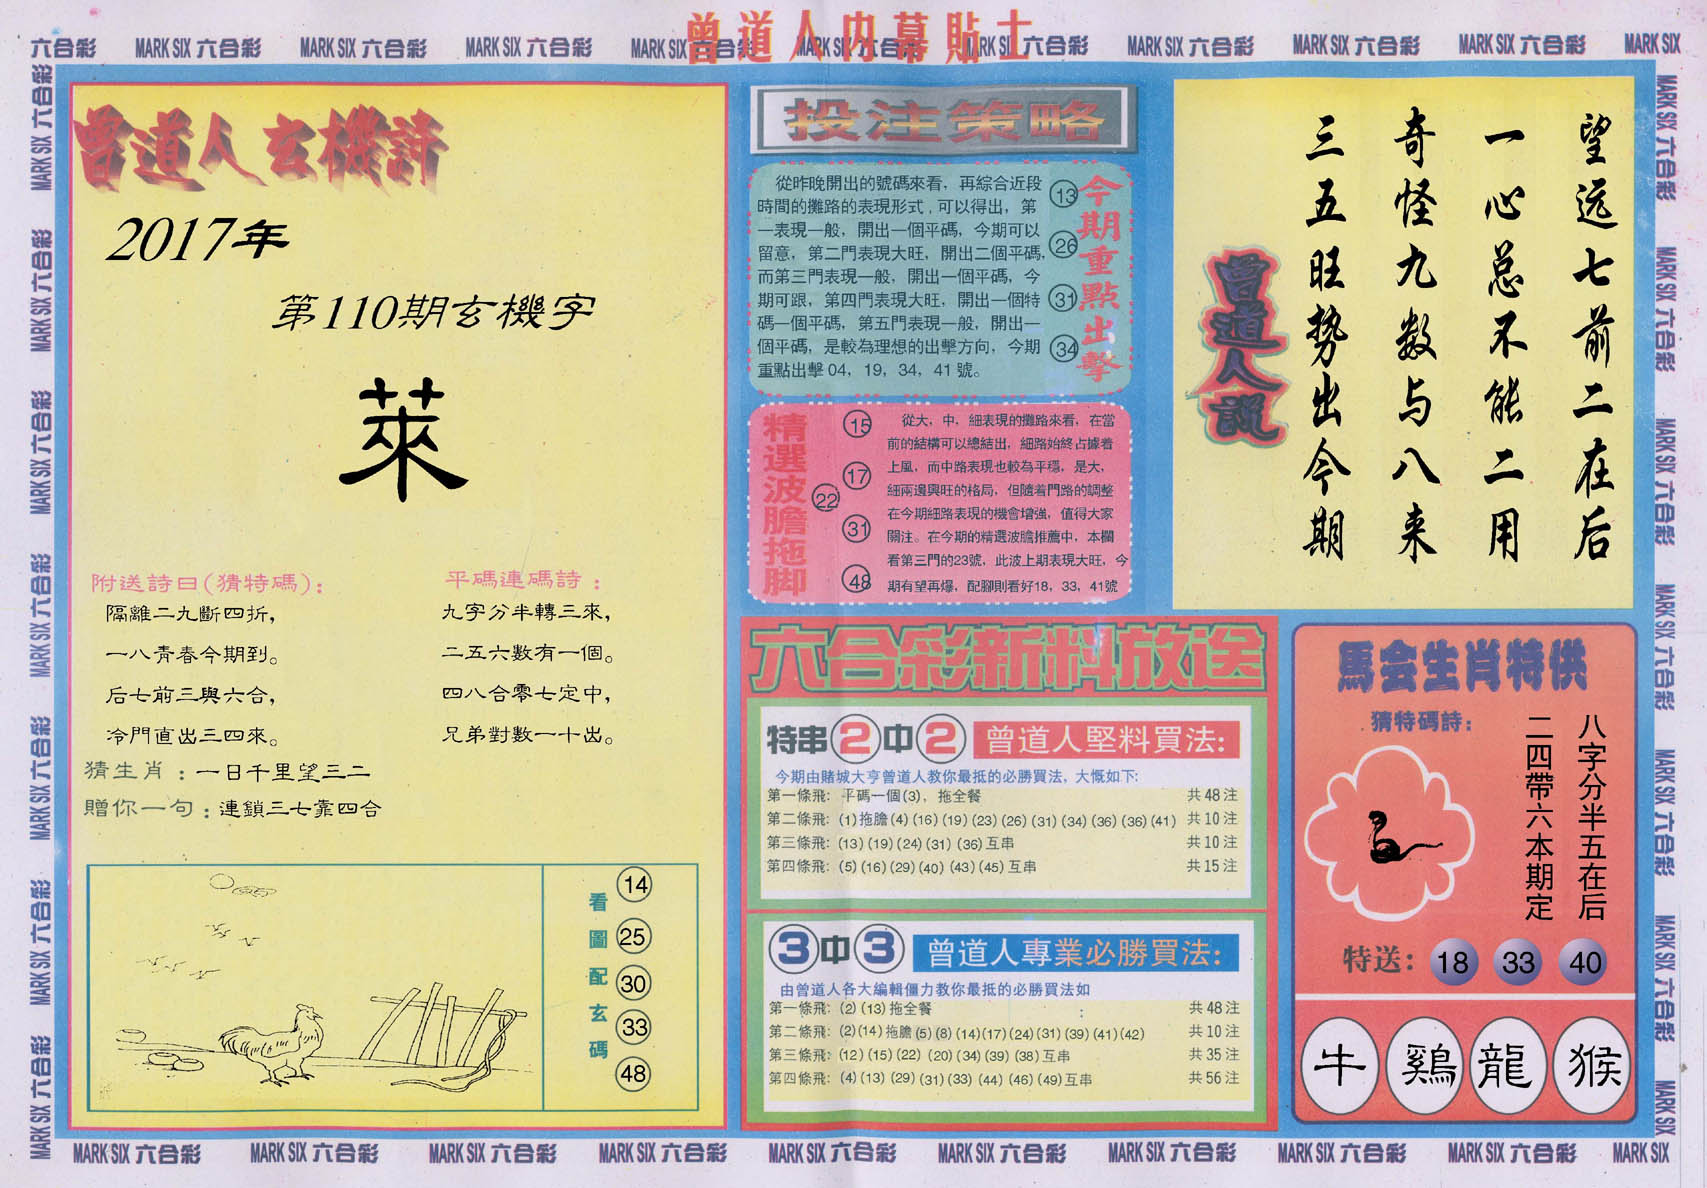 曾道人内幕貼士
六合彩 MARK SIX 六合彩 MARK SIX 六合彩 MARK SIX 六合彩 MARK SIX 六合彩 MARK SIX 六合彩 MARK SIX 六合彩 MARK SIX 六合彩 MARK SIX 六合彩 MARK SIX 六合彩 MARK SIX
曾道人玄機詩
2017年
第110期玄機字
萊
附送詩曰(猜特碼):
隔離二九斷四折,
一八青春今期到。
后七前三與六合,
冷門直出三四來。
平碼連碼詩:
九字分半轉三來,
二五六數有一個。
四八合零七定中,
兄弟對數一十出。
猜生肖:一日千里望三二
贈你一句:連鎖三七靠四合
看圖配玄碼
14
25
30
33
48
投注策略
從昨晚開出的號碼來看，再綜合近段
時間的攤路的表現形式,可以得出，第
一表現一般，開出一個平碼，今期可以
留意，第二門表現大旺，開出二個平碼,
而第三門表現一般，開出一個平碼，今
期可跟，第四門表現大旺，開出一個特
碼一個平碼，第五門表現一般，開出一
個平碼，是較為理想的出擊方向，今期
重點出擊 04，19，34，41 號。
13
26
31
34
今期重點出擊
精選波膽拖脚
15
17
22
31
48
從大，中，細表現的攤路來看，在當
前的結構可以總結出，細路始終占據着
上風，而中路表現也較為平穩，是大，
細兩邊興旺的格局，但隨着門路的調整
在今期細路表現的機會增強，值得大家
關注。在今期的精選波膽推薦中，本欄
看第三門的23號，此波上期表現大旺，今
期有望再爆，配腳則看好18，33，41號
望远七前二在后
一心总不能二用
奇怪九数与八来
三五旺势出今期
曾道人説
六合彩新料放送
特串2中2 曾道人堅料買法:
今期由賭城大亨曾道人教你最抵的必勝買法，大慨如下:
第一條飛: 平碼一個(3)，拖全餐 共 48 注
第二條飛: (1)拖膽(4)(16)(19)(23)(26)(31)(34)(36)(36)(41) 共 10 注
第三條飛: (13)(19)(24)(31)(36)互串 共 10 注
第四條飛: (5)(16)(29)(40)(43)(45)互串 共 15 注
3中3 曾道人專業必勝買法:
由曾道人各大編輯僵力教你最抵的必勝買法如
第一條飛: (2)(13)拖全餐 共 48 注
第二條飛: (2)(14)拖膽(5)(8)(14)(17)(24)(31)(39)(41)(42) 共 10 注
第三條飛: (12)(15)(22)(20)(34)(39)(38)互串 共 35 注
第四條飛: (4)(13)(29)(31)(33)(44)(46)(49)互串 共 56 注
馬会生肖特供
猜特碼詩:
八字分半五在后
二四帶六本期定
特送: 18 33 40
牛 鷄 龍 猴
MARK SIX 六合彩 MARK SIX 六合彩 MARK SIX 六合彩 MARK SIX 六合彩 MARK SIX 六合彩 MARK SIX 六合彩 MARK SIX 六合彩 MARK SIX 六合彩 MARK SIX 六合彩 MARK SIX